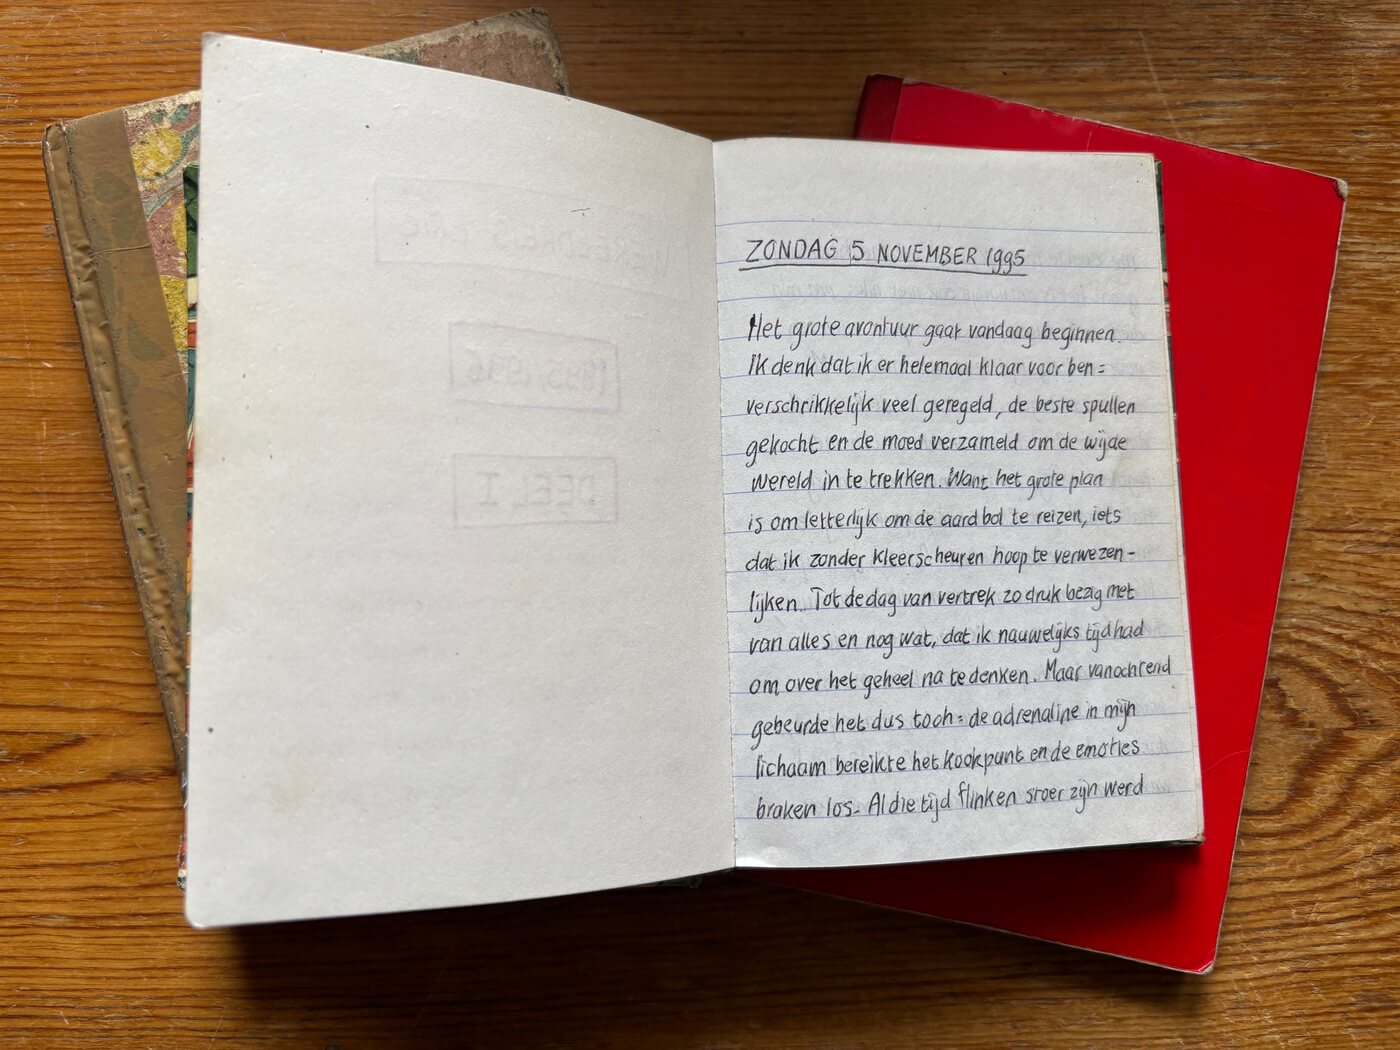 ZONDAG 5 NOVEMBER 1995
Het grote avontuur gaat vandaag beginnen.
Ik denk dat ik er helemaal klaar voor ben:
verschrikkelijk veel geregeld, de beste spullen
gekocht en de moed verzameld om de wijde
wereld in te trekken. Want het grote plan
is om letterlijk om de aardbol te reizen, iets
dat ik zonder kleerscheuren hoop te verwezen-
lijken. Tot de dag van vertrek zo druk bezig met
van alles en nog wat, dat ik nauwelijks tijd had
om over het geheel na te denken. Maar vanochtend
gebeurde het dus toch: de adrenaline in mijn
lichaam bereikte het kookpunt en de emoties
braken los. Al die tijd flinken stoer zijn werd